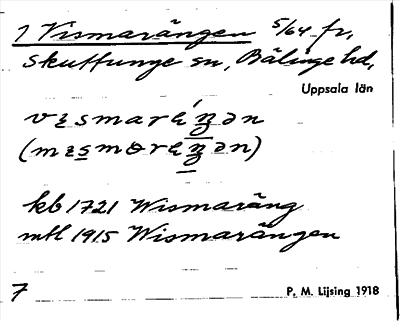 1 Vismarängen 5/64 fr,
Skuttunge sn, Bälinge hd,
Uppsala län
kb 1721 Wismaräng
mtl 1915 Wismarängen
7 P. M. Lijsing 1918